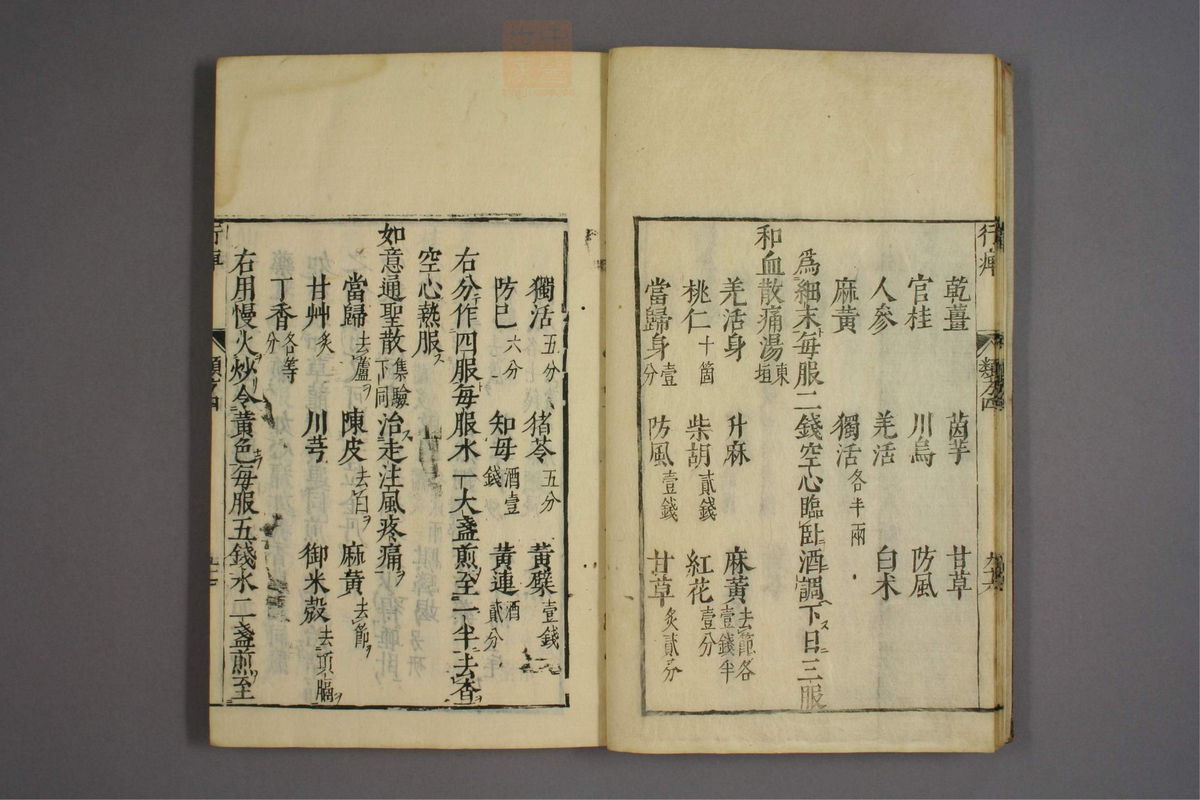 行痺 類方四
乾薑 茵芋 甘草
官桂 川烏 防風
人參 羌活 白术
麻黃 獨活各半兩
為細末每服二錢空心臨臥酒調下日三服
和血散痛湯東垣
羌活身 升麻 麻黃去節各壹錢半
桃仁十箇 柴胡貳錢 紅花壹分
當歸身壹分 防風壹錢 甘草炙貳分
獨活五分 猪苓五分 黃檗壹錢
防己六分 知母酒壹錢 黃連酒貳分
右分作四服每服水一大盞煎至一半去查
空心熱服
如意通聖散集驗下同治走注風疼痛
當歸去蘆 陳皮去白 麻黃去節
甘艸炙 川芎 御米殼去頂膈
丁香各等分
右用慢火炒令黃色每服五錢水二盞煎至
行痺 類方四